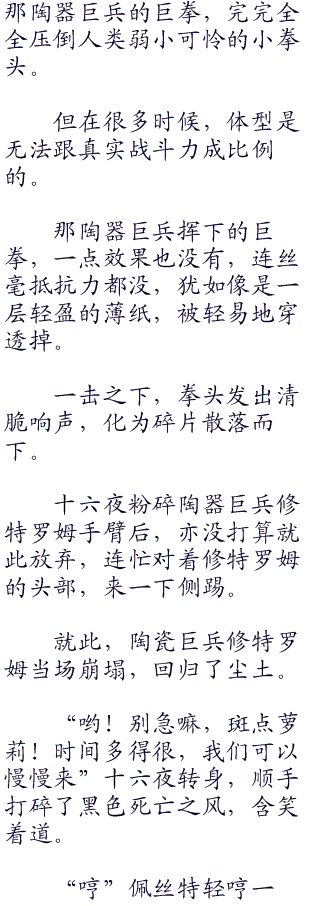 那陶器巨兵的巨拳，完完全
全压倒人类弱小可怜的小拳
头。
但在很多时候，体型是
无法跟真实战斗力成比例
的。
那陶器巨兵挥下的巨
拳，一点效果也没有，连丝
毫抵抗力都没，犹如像是一
层轻盈的薄纸，被轻易地穿
透掉。
一击之下，拳头发出清
脆响声，化为碎片散落而
下。
十六夜粉碎陶器巨兵修
特罗姆手臂后，亦没打算就
此放弃，连忙对着修特罗姆
的头部，来一下侧踢。
就此，陶瓷巨兵修特罗
姆当场崩塌，回归了尘土。
“哟！别急嘛，斑点萝
莉！时间多得很，我们可以
慢慢来”十六夜转身，顺手
打碎了黑色死亡之风，含笑
着道。
“哼”佩丝特轻哼一